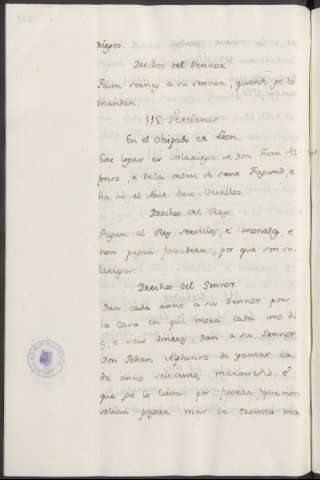 riegos.
Drechos del Sennor
Facen serviz a su sennor, quando ge lo
mandan.
En el Obispado de Leon.
Este logar es solariego de Don Joan Al
fonso, e de la orden de sant Fagund, e
ha hi el Abat doce Vasallos.
Drechos del Rey.
Pagan al Rey servicios, e moneda, e
non pagan fonsadera, por que son so
lariegos.
Drechos del Sennor.
Dan cada anno a su Sennor por
la casa en que mora cada uno
Don Johan Alphonso de yantar ca
da anno seiscientos maravedis, e
que ge lo lieva por fuerza, que non
solian pagar mas de treinta ma